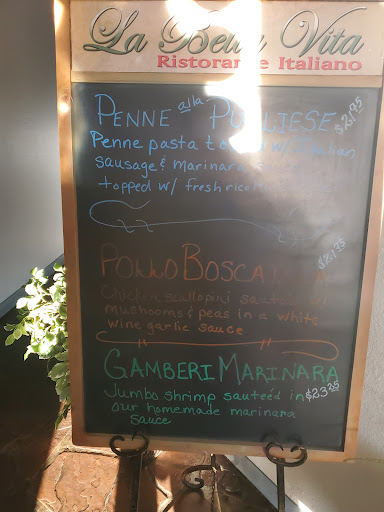 La Bella Vita
Ristorante Italiano
PENNE alla PUGLIESE $21.75
Penne pasta w/ Italian
sausage & marinara
topped w/ fresh
POLLO $21.75
Chicken scallopini
mushooms & peas in a white
wine garlic sauce
GAMBERI MARINARA
Jumbo shrimp sauteéd in $23.25
our homemade marinara
sauce